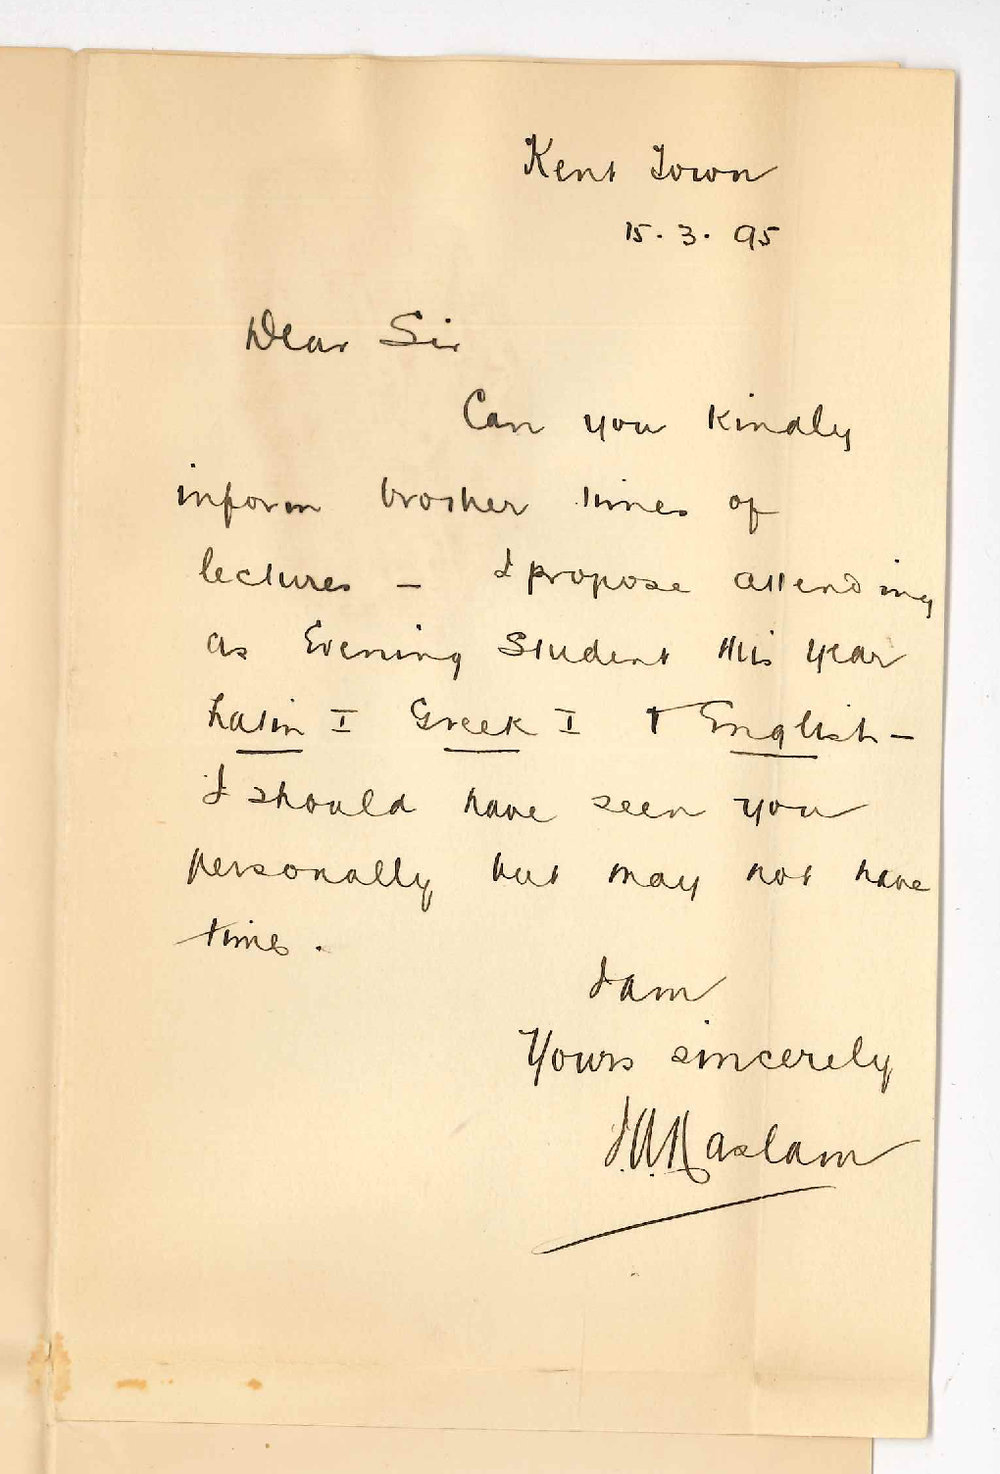 Kent Town
15. 3. 95
Dear Sir
Can you kindly
inform brother times of
lectures - I propose attending
as Evening Student this year
Latin I Greek I & English -
I should have seen you
personally but may not have
time.
I am
Yours sincerely
J.A. Haslam